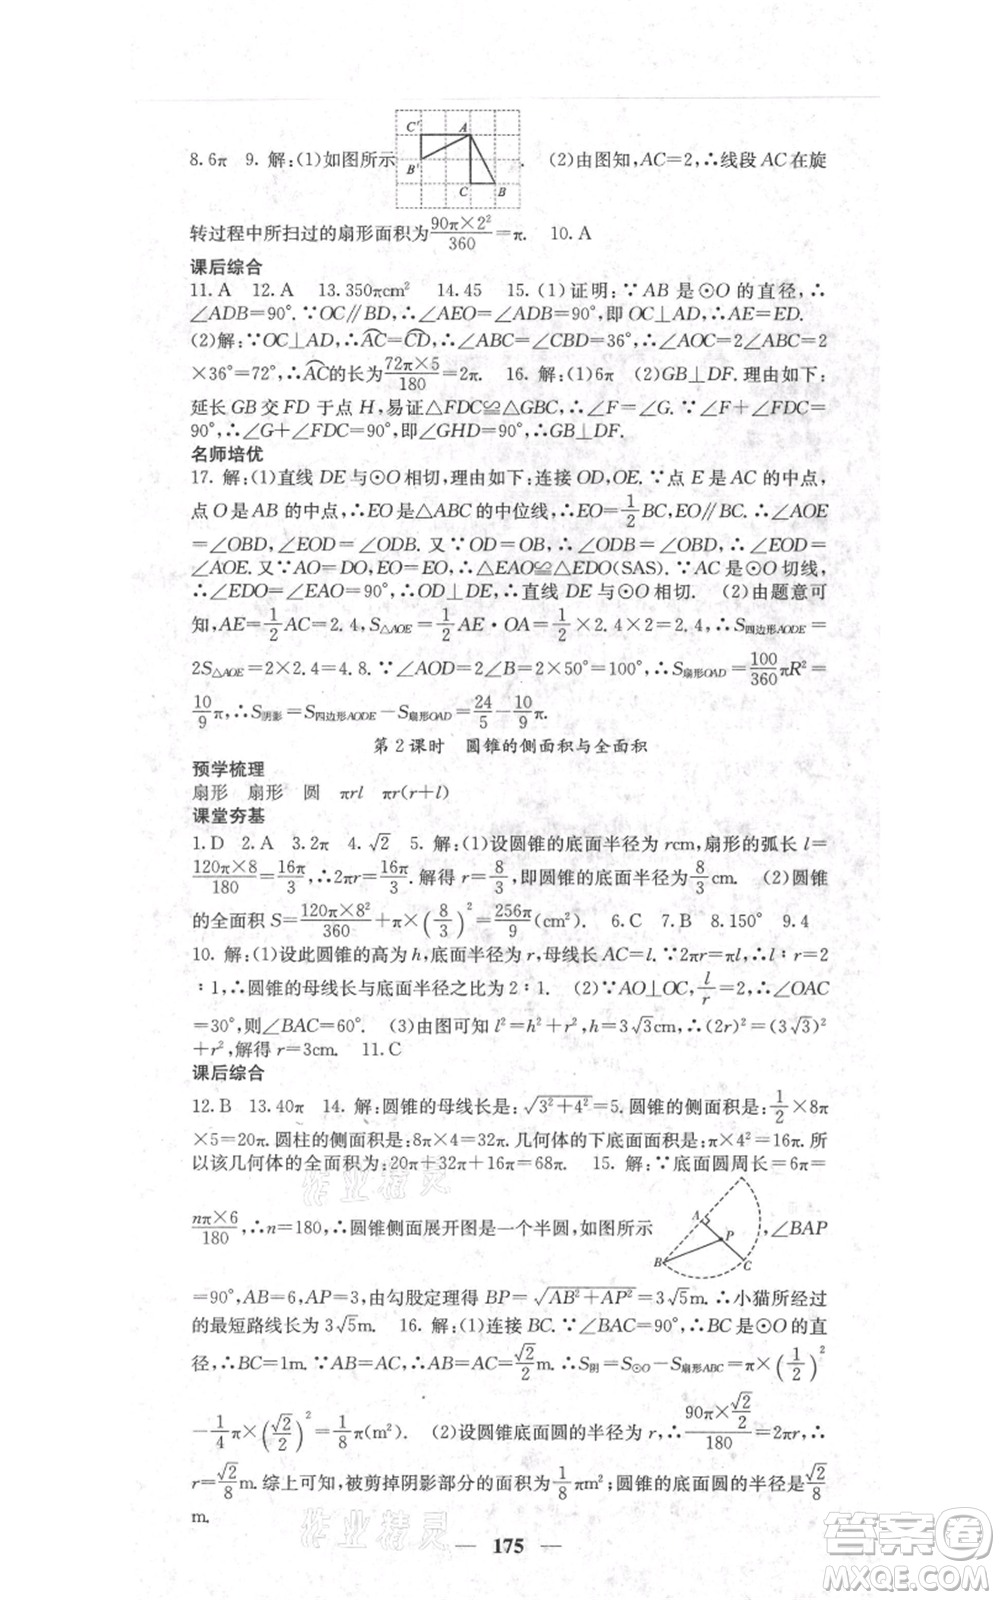 C′ A
8.6π 9. 解:(1)如图所示 . (2)由图知,AC=2,∴线段 AC 在旋
B′
C B
转过程中所扫过的扇形面积为90π×2²/360=π. 10. A
课后综合
11. A 12. A 13. 350πcm² 14. 45 15. (1)证明:∵AB 是⊙O 的直径,∴
∠ADB=90°.∵OC∥BD,∴∠AEO=∠ADB=90°,即 OC⊥AD,∴AE=ED.
(2)解:∵OC⊥AD,∴AC=CD,∴∠ABC=∠CBD=36°,∴∠AOC=2∠ABC=2
×36°=72°,∴AC的长为72π×5/180=2π. 16. 解:(1)6π (2)GB⊥DF. 理由如下:
延长 GB 交 FD 于点 H,易证△FDC≌△GBC,∴∠F=∠G.∵∠F+∠FDC=
90°,∴∠G+∠FDC=90°,即∠GHD=90°,∴GB⊥DF.
名师培优
17. 解:(1)直线 DE 与⊙O 相切,理由如下:连接 OD,OE.∵点 E 是 AC 的中点,
点 O 是 AB 的中点,∴EO是△ABC 的中位线,∴EO=1/2BC,EO∥BC.∴∠AOE
=∠OBD,∠EOD=∠ODB. 又∵OD=OB,∴∠ODB=∠OBD,∴∠EOD=
∠AOE. 又∵AO=DO,EO=EO,∴△EAO≌△EDO(SAS).∵AC 是⊙O 切线,
∴∠EDO=∠EAO=90°,∴OD⊥DE,∴直线 DE 与⊙O 相切. (2)由题意可
知,AE=1/2AC=2.4,S△AOE=1/2AE·OA=1/2×2.4×2=2.4,∴S四边形AODE=
2S△AOE=2×2.4=4.8.∵∠AOD=2∠B=2×50°=100°,∴S扇形OAD=100/360πR²=
10/9π,∴S阴影=S四边形AODE−S扇形OAD=24/5−10/9π.
第 2 课时 圆锥的侧面积与全面积
预学梳理
扇形 扇形 圆 πrl πr(r+l)
课堂夯基
1. D 2. A 3. 2π 4. √2 5. 解:(1)设圆锥的底面半径为 rcm,扇形的弧长 l=
120π×8/180=16π/3,∴2πr=16π/3. 解得 r=8/3,即圆锥的底面半径为8/3cm. (2)圆锥
的全面积 S=120π×8²/360+π×(8/3)²=256π/9(cm²). 6. C 7. B 8. 150° 9. 4
10. 解:(1)设此圆锥的高为 h,底面半径为 r,母线长 AC=l.∵2πr=πl,∴l∶r=2
∶1,∴圆锥的母线长与底面半径之比为 2∶1. (2)∵AO⊥OC,l/r=2,∴∠OAC
=30°,则∠BAC=60°. (3)由图可知 l²=h²+r²,h=3√3cm,∴(2r)²=(3√3)²
+r²,解得 r=3cm. 11. C
课后综合
12. B 13. 40π 14. 解:圆锥的母线长是:√3²+4²=5. 圆锥的侧面积是:1/2×8π
×5=20π. 圆柱的侧面积是:8π×4=32π. 几何体的下底面面积是:π×4²=16π. 所
以该几何体的全面积为:20π+32π+16π=68π. 15. 解:∵底面圆周长=6π=
A
nπ×6/180,∴n=180,∴圆锥侧面展开图是一个半圆,如图所示 P ,∠BAP
B C
=90°,AB=6,AP=3,由勾股定理得 BP=√AB²+AP²=3√5m.∴小猫所经过
的最短路线长为 3√5m. 16. 解:(1)连接 BC.∵∠BAC=90°,∴BC 是⊙O 的直
径,∴BC=1m.∵AB=AC,∴AB=AC=√2/2m.∴S阴=S⊙O−S扇形ABC=π×(1/2)²
−1/4π×(√2/2)²=1/8π(m²). (2)设圆锥底面圆的半径为 r,∴90π×√2/2/180=2πr,∴
r=√2/8m. 综上可知,被剪掉阴影部分的面积为1/8πm²;圆锥的底面圆的半径是√2/8
m.
作业精灵
作业精灵
— 175 —
答案圈
MXQE.COM